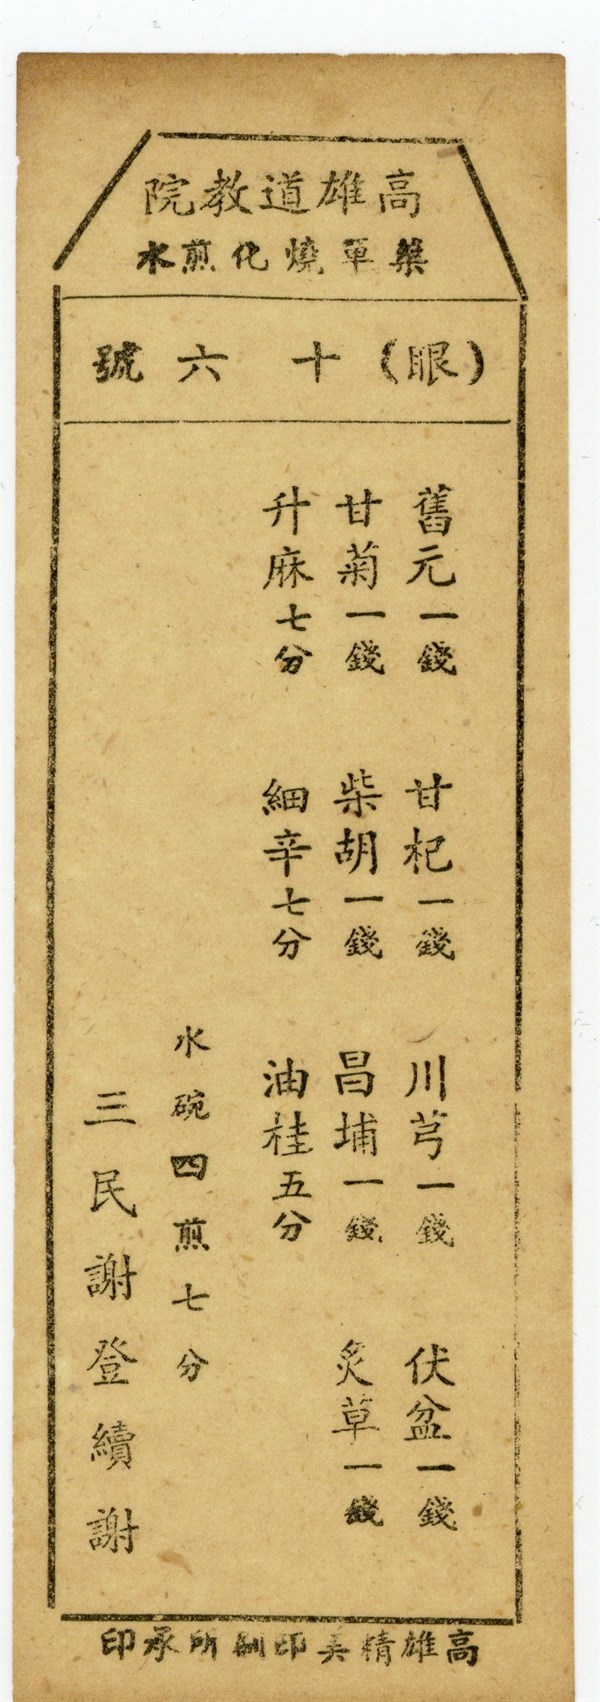 高雄道教院
藥單燒化煎水
(眼)十六號
舊元一錢 甘杞一錢 川芎一錢 伏盆一錢
甘菊一錢 柴胡一錢 昌埔一錢 炙草一錢
升麻七分 細辛七分 油桂五分
水碗四煎七分
三民謝登續謝
高雄精美印刷所承印